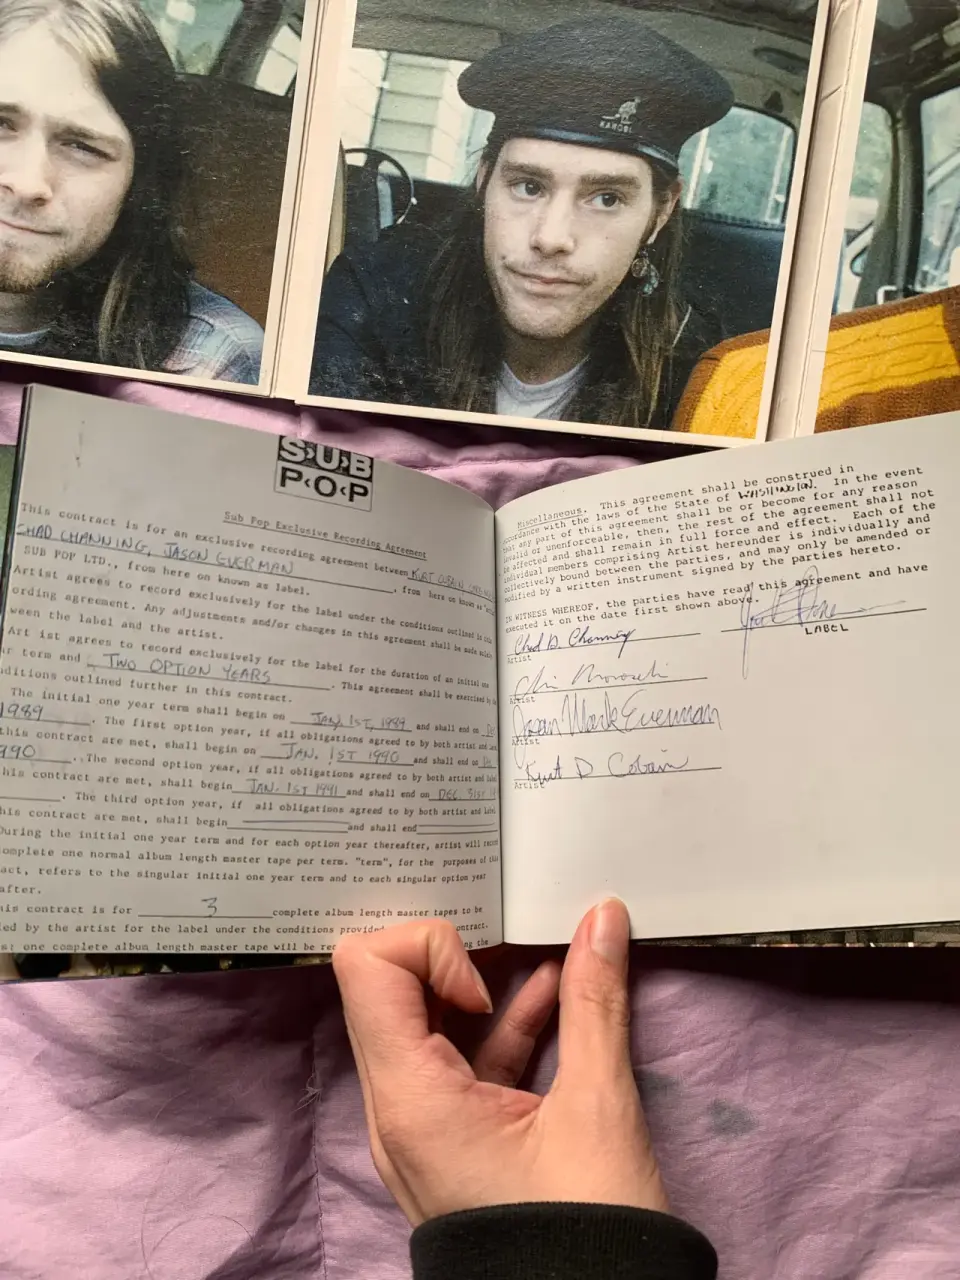 KANGOL
S·U·B
P·O·P
Sub Pop Exclusive Recording Agreement
This contract is for an exclusive recording agreement between
CHAD CHANNING, JASON EVERMAN
SUB POP LTD., from here on known as label. , from here on known as
Artist agrees to record exclusively for the label under the conditions outlined in this
ording agreement. Any adjustments and/or changes in this agreement shall be made
ween the label and the artist.
Art ist agrees to record exclusively for the label for the duration of an initial one
r term and TWO OPTION YEARS . This agreement shall be exercised
ditions outlined further in this contract.
The initial one year term shall begin on JAN. 1ST, 1989 and shall end on
1989 . The first option year, if all obligations agreed to by both artist and
this contract are met, shall begin on JAN. 1ST 1990 and shall end on
990 . The second option year, if all obligations agreed to by both artist and label
his contract are met, shall begin JAN. 1ST 1991 and shall end on DEC. 31ST
. The third option year, if all obligations agreed to by both artist and label
his contract are met, shall begin and shall end
During the initial one year term and for each option year thereafter, artist will record
omplete one normal album length master tape per term. "term", for the purposes of this
act, refers to the singular initial one year term and to each singular option year
after.
his contract is for 3 complete album length master tapes to be
ed by the artist for the label under the conditions provided ontract.
s: one complete album length master tape will be rec ng the
Miscellaneous. This agreement shall be construed in
accordance with the laws of the State of WASHINGTON. In the event
that any part of this agreement shall be or become for any reason
invalid or unenforceable, then, the rest of the agreement shall not
be affected and shall remain in full force and effect. Each of the
individual members comprising Artist hereunder is individually and
collectively bound between the parties, and may only be amended or
modified by a written instrument signed by the parties hereto.
IN WITNESS WHEREOF, the parties have read this agreement and have
executed it on the date first shown above.
LABEL
Chad D. Channing
Artist
Artist
Jason Mark Everman
Artist
Kurt D Cobain
Artist